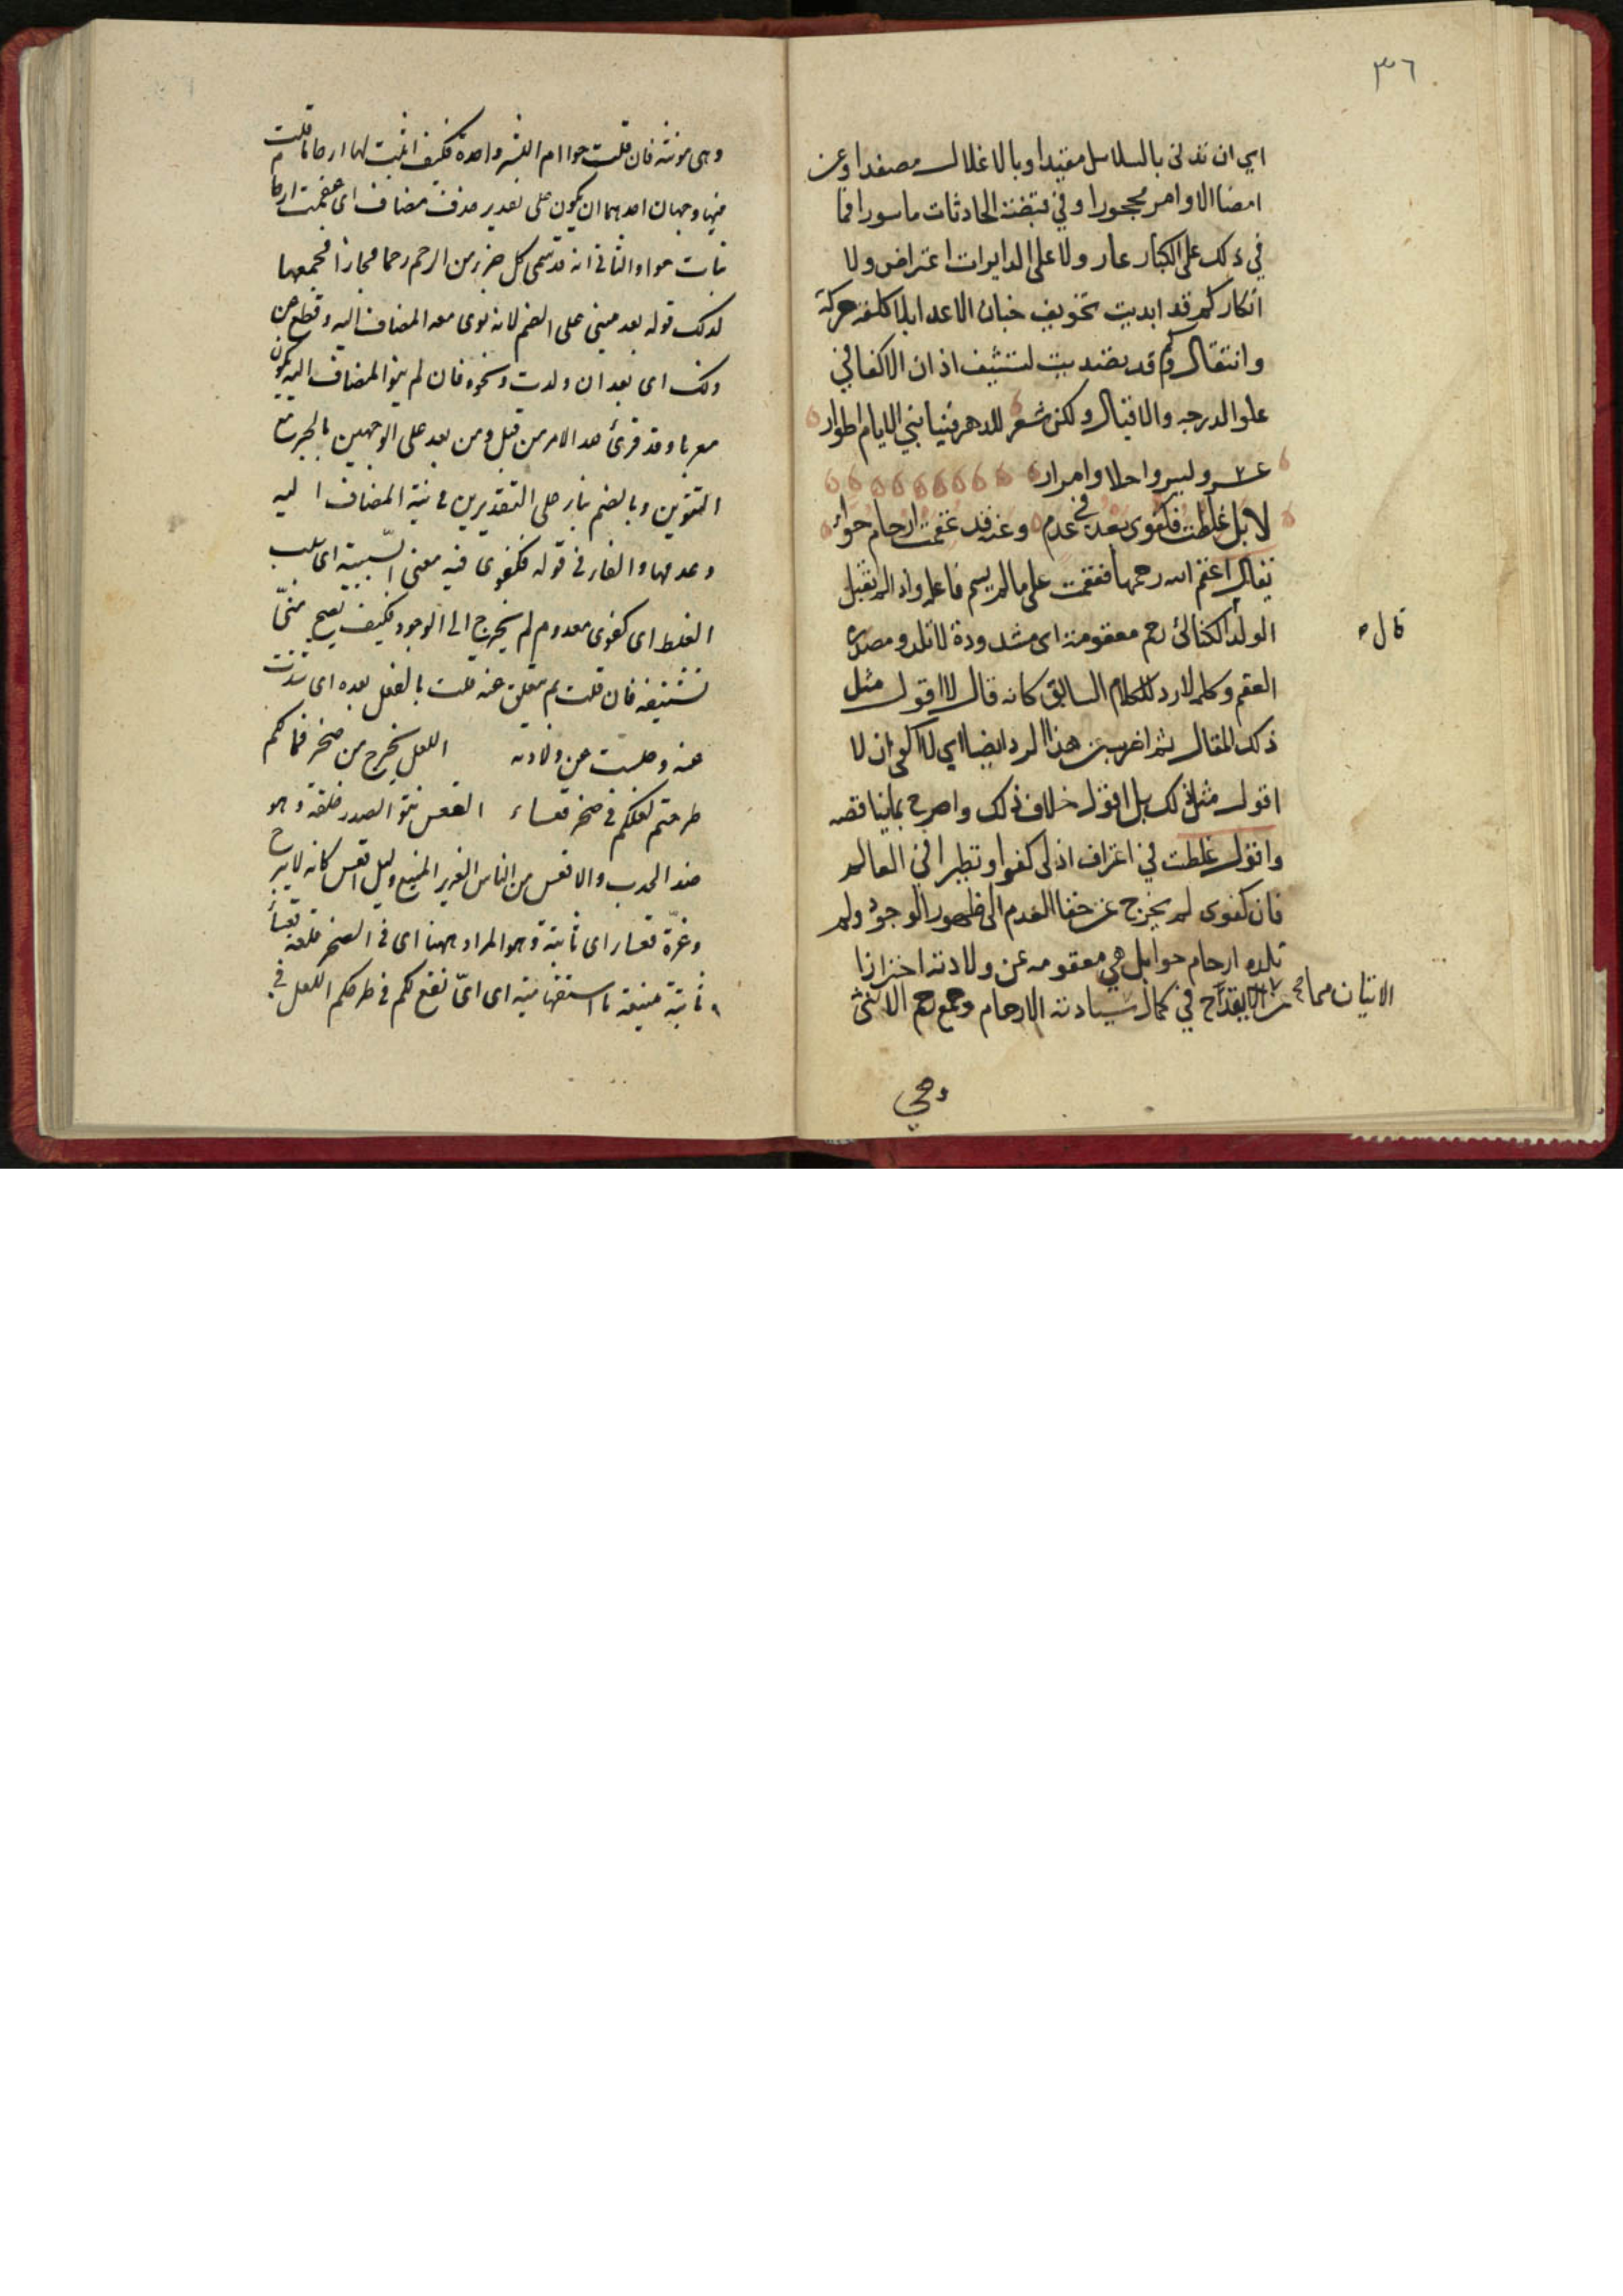 ٣٦
اي ان تدلى بالسلاسل مقيدا وبالاغلال مصفدا وعن
امضا الاوامر محجورا وفي قبضة الحادثات ماسورا فما
في ذلك على الكبار عار ولا على الدايرات اعتراض ولا
انكار كم قد ابديت تخويف جنان الاعدا بلا كلفة حركة
وانتقال وكم قد تصديت لتشنيف اذان الاكفا في
علو الدرجه والاقبال ولكن شعر للدهر فينا بني الايام اطوار
عسر ويسر واحلا وامرار
لا بل غلطت فكفوى بعد في عدم وعنه قد عقمت ارحام حواء
يقال اعقم الله رحمها فعقمت على ما لم يسم فاعله واذا لم تقبل
الولد الكسائى رحم معقومة اى مشدودة لا تلد ومصدره
قال
العقم وكلمه لا رد للكلام السابق كانه قال لا اقول مثل
ذلك المقال ثم اضرب عن هذا الرد ايضا اي لا اكتفى ان لا
اقول مثل ذلك بل اقول خلاف ذلك واصرح بما يناقضه
واقول غلطت في اعتراف ان لى كفوا ونظيرا في العالم
فان كفوى لم يخرج عن خفا العدم الى ظهور الوجود ولم
تلده ارحام حوا بل هي معقومه عن ولادته احترازا
الاتيان مما
يقدح في كمال سيادته الارحام جمع رحم الانثى
وهي
وهى مونثه فان قلت حوا ام البشر واحدة فكيف اثبت لها ارحاما قلت
فيها وجهان احدهما ان يكون على تقدير حذف مضاف اى عقمت ارحام
بنات حوا والثانى انه قد سمى كل جزء من الرحم رحما مجازا فجمعها
لذلك قوله بعد مبنى على الضم لانه نوى معه المضاف اليه وقطع عن
ذلك اى بعد ان ولدت ونحوه فان لم ينو المضاف اليه يكون
معربا وقد قرئ لله الامر من قبل ومن بعد على الوجهين بالجر مع
التنوين وبالضم بناء على التقديرين فى نية المضاف اليه
وعدمها والفاء فى قوله فكفوى فيه معنى السببية اى سبب
الغلط اى كفوى معدوم لم يخرج الى الوجود فكيف يصح منى
تشنيفه فان قلت بم تعلق عنه قلت بالفعل بعده اى شذت
عنه وحلست عن ولادته اللعل يخرج من صخر فما لكم
طرحتم لعلكم فى صخر قعساء القعس نتو الصدر خلقة وهو
ضد الحدب والاقعس من الناس العزيز المنيع وليل اقعس كانه لا يبرح
وعزة قعساء اى ثابتة وهو المراد ههنا اى فى الصخر قلعة قعساء
ثابتة منيعة ما استفهامية اى اىّ نفع لكم فى طرحكم اللعل فى